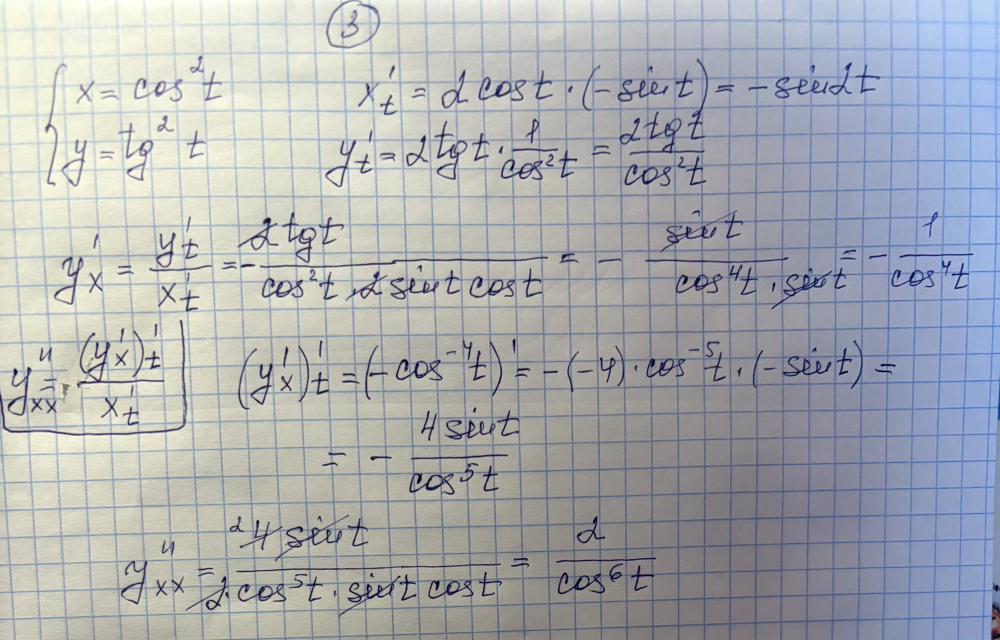 3
{ x = cos²t    x't = 2cost · (-sint) = -sin2t
y = tg² t    y't = 2tgt · 1/cos²t = 2tgt/cos²t
y'x = y't/x't = - 2tgt/(cos²t · 2sint cost) = - sint/(cos⁴t · sint) = - 1/cos⁴t
y''xx = (y'x)'t/x't    (y'x)'t = (-cos⁻⁴t)' = -(-4)·cos⁻⁵t · (-sint) =
= - 4sint/cos⁵t
y''xx = ² 4sint/(2·cos⁵t · sint cost) = 2/cos⁶t